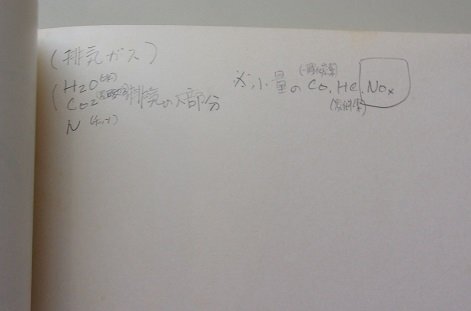 (排気ガス)
H2O(水)
CO2(二酸化炭素)排気の大部分
N(チッソ)
が小量のCo.HC.NOx
(一酸化炭素)
(炭化水素)